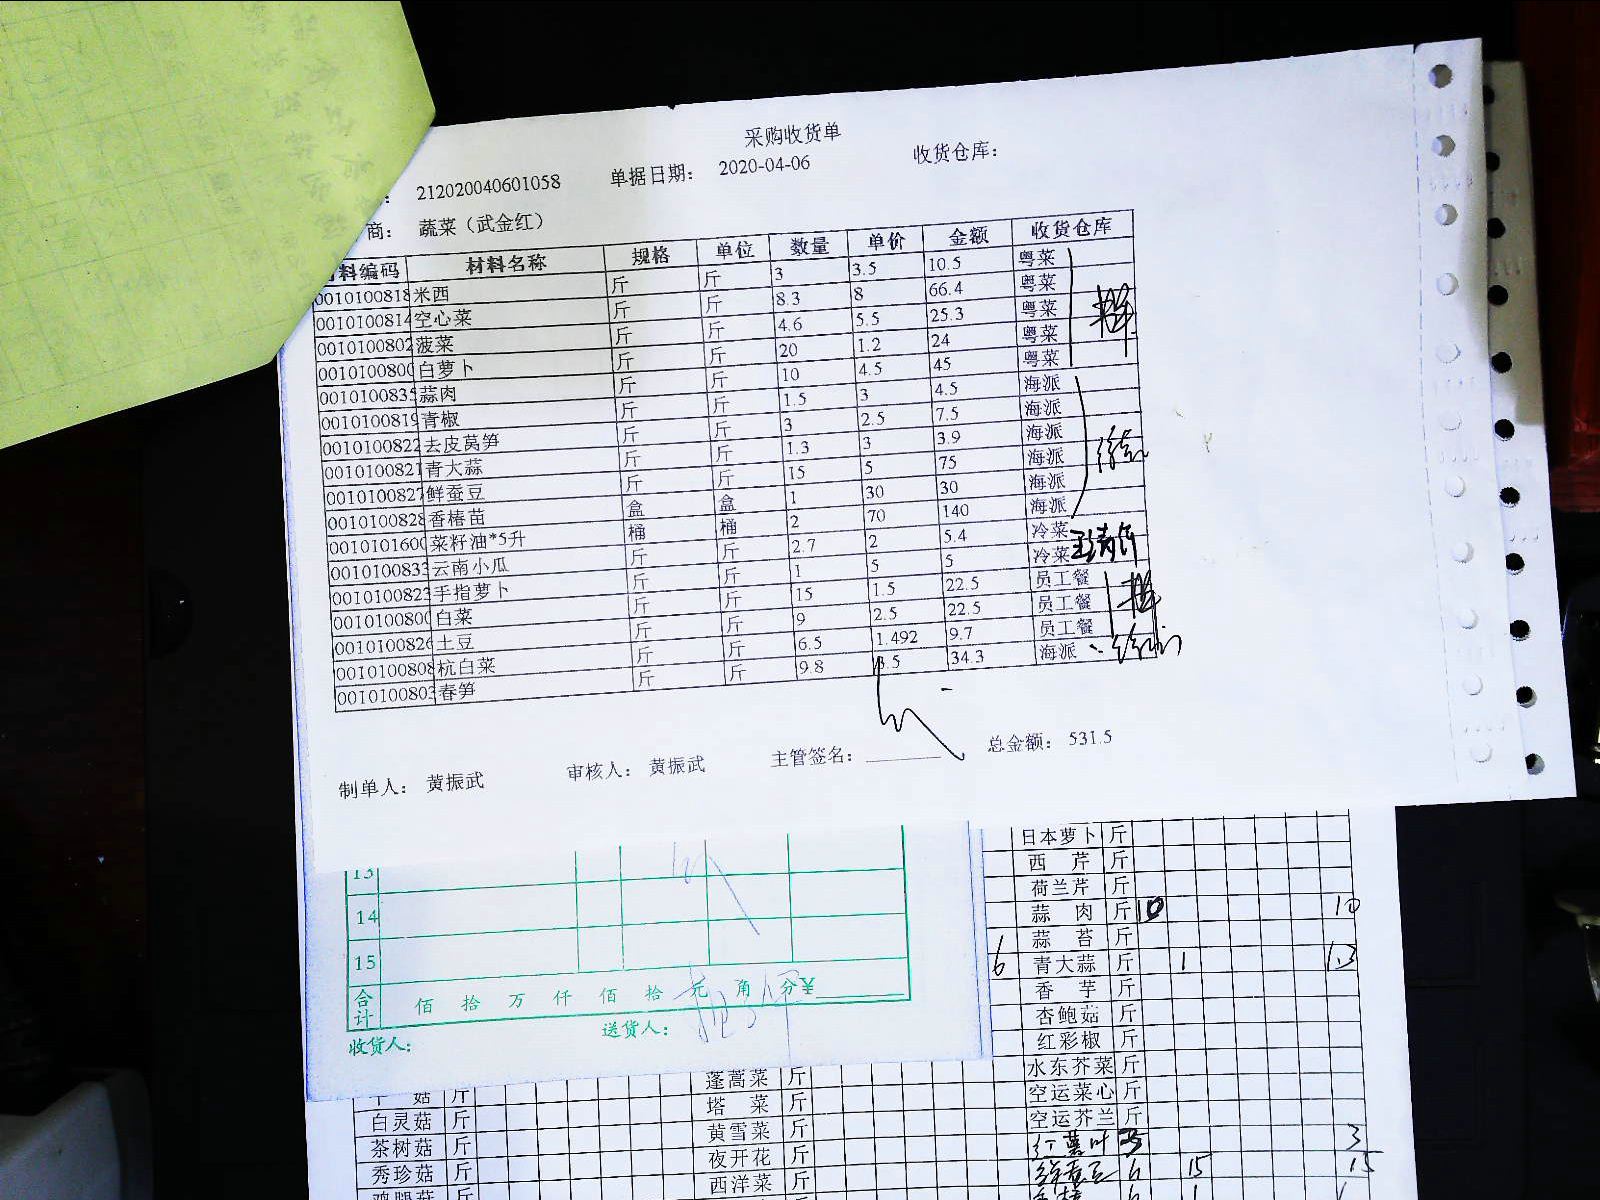 采购收货单
: 212020040601058 单据日期: 2020-04-06 收货仓库:
商: 蔬菜（武金红）
料编码 材料名称 规格 单位 数量 单价 金额 收货仓库
0010100818 米西 斤 斤 3 3.5 10.5 粤菜
0010100814 空心菜 斤 斤 8.3 8 66.4 粤菜
0010100802 菠菜 斤 斤 4.6 5.5 25.3 粤菜
0010100800 白萝卜 斤 斤 20 1.2 24 粤菜
0010100835 蒜肉 斤 斤 10 4.5 45 粤菜
0010100819 青椒 斤 斤 1.5 3 4.5 海派
0010100822 去皮莴笋 斤 斤 3 2.5 7.5 海派
0010100821 青大蒜 斤 斤 1.3 3 3.9 海派
0010100827 鲜蚕豆 斤 斤 15 5 75 海派
0010100828 香椿苗 盒 盒 1 30 30 海派
0010101600 菜籽油*5升 桶 桶 2 70 140 海派
0010100833 云南小瓜 斤 斤 2.7 2 5.4 冷菜
0010100823 手指萝卜 斤 斤 1 5 5 冷菜
0010100800 白菜 斤 斤 15 1.5 22.5 员工餐
0010100826 土豆 斤 斤 9 2.5 22.5 员工餐
0010100808 杭白菜 斤 斤 6.5 1.492 9.7 员工餐
0010100803 春笋 斤 斤 9.8 3.5 34.3 海派
制单人: 黄振武 审核人: 黄振武 主管签名: 总金额: 531.5
13
14
15
合计 佰 拾 万 仟 佰 拾 元 角 分
收货人: 送货人:
日本萝卜 斤
西芹 斤
荷兰芹 斤
蒜肉 斤 10 10
蒜苔 斤
6 青大蒜 斤 1 13
香芋 斤
杏鲍菇 斤
红彩椒 斤
水东芥菜 斤
空运菜心 斤
空运芥兰 斤
红薯叶 3 3
鲜蚕豆 6 15 15
菇 斤
白灵菇 斤
茶树菇 斤
秀珍菇 斤
鸡腿菇 斤
蓬蒿菜 斤
塔菜 斤
黄雪菜 斤
夜开花 斤
西洋菜 斤